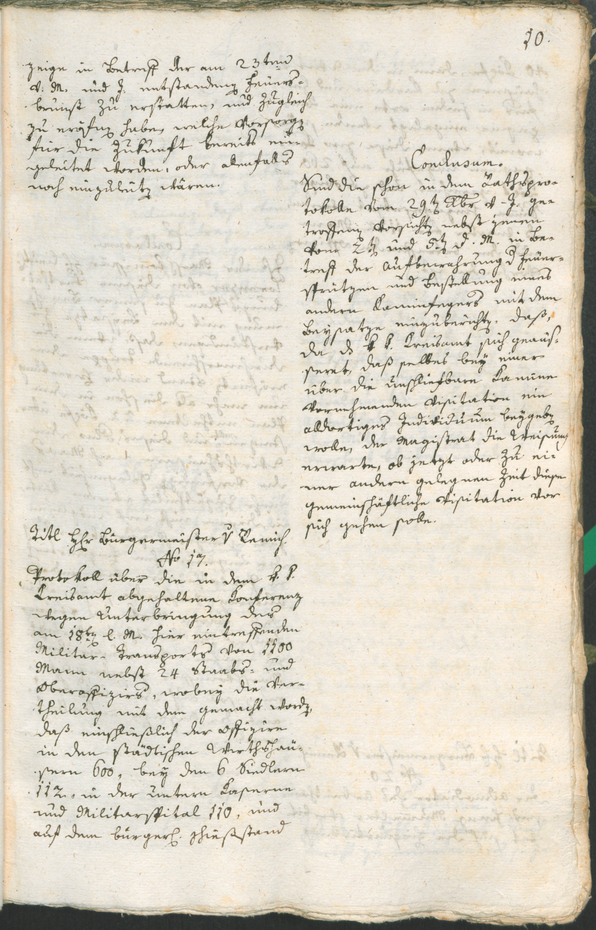 10.
zeige in Betreff der am 23ten
v. M. und J. entstandenen Feuers-
brunst zu erstatten, und zugleich
zu eröfnen habe, welche Vorsorge
für die Zukunft bereits ein
geleitet worden, oder allenfalls
noch einzuleiten wären.
Conclusum.
Sind die schon in dem Rathspro-
tokolle vom 29ten v. J. ge-
troffenen Vorsichten nebst jenen
vom 2ten und 5ten d. M. in Be-
treff der Aufbewahrung d Feuer-
spritzen und Bestellung eines
andern Kaminfegers mit dem
Beysatze einzuberichten, daß,
da d K. K. Kreisamt sich geäus-
seret, daß selbes bey einer
über die unschliefbare Kamine
vornehmenden Visitation ein
alldortiges Individuum beygeben
wolle, der Magistrat die Weisung
erwarte, ob jetzt oder zu ei-
ner andern gelegnen Zeit diese
gemeinschäftliche Visitation vor
sich gehen solle.
Titl Hr Bürgermeister v
No 17.
Protokoll über die in dem K. K.
Kreisamt abgehaltene Konferenz
wegen Unterbringung des
am 18ten l. M. hier eintreffenden
Militar-Transports von 1100
Mann nebst 24 Staabs- und
Oberoffiziers, wobey die Ver-
theilung mit dem gemacht worden,
daß einschließlich der Offizire
in den städtischen Wirthshäu-
sern 600, bey den 6 Sindlern
112, in der untern Kaserne
und Militarspital 110, und
auf dem bürgerl. Schießstand